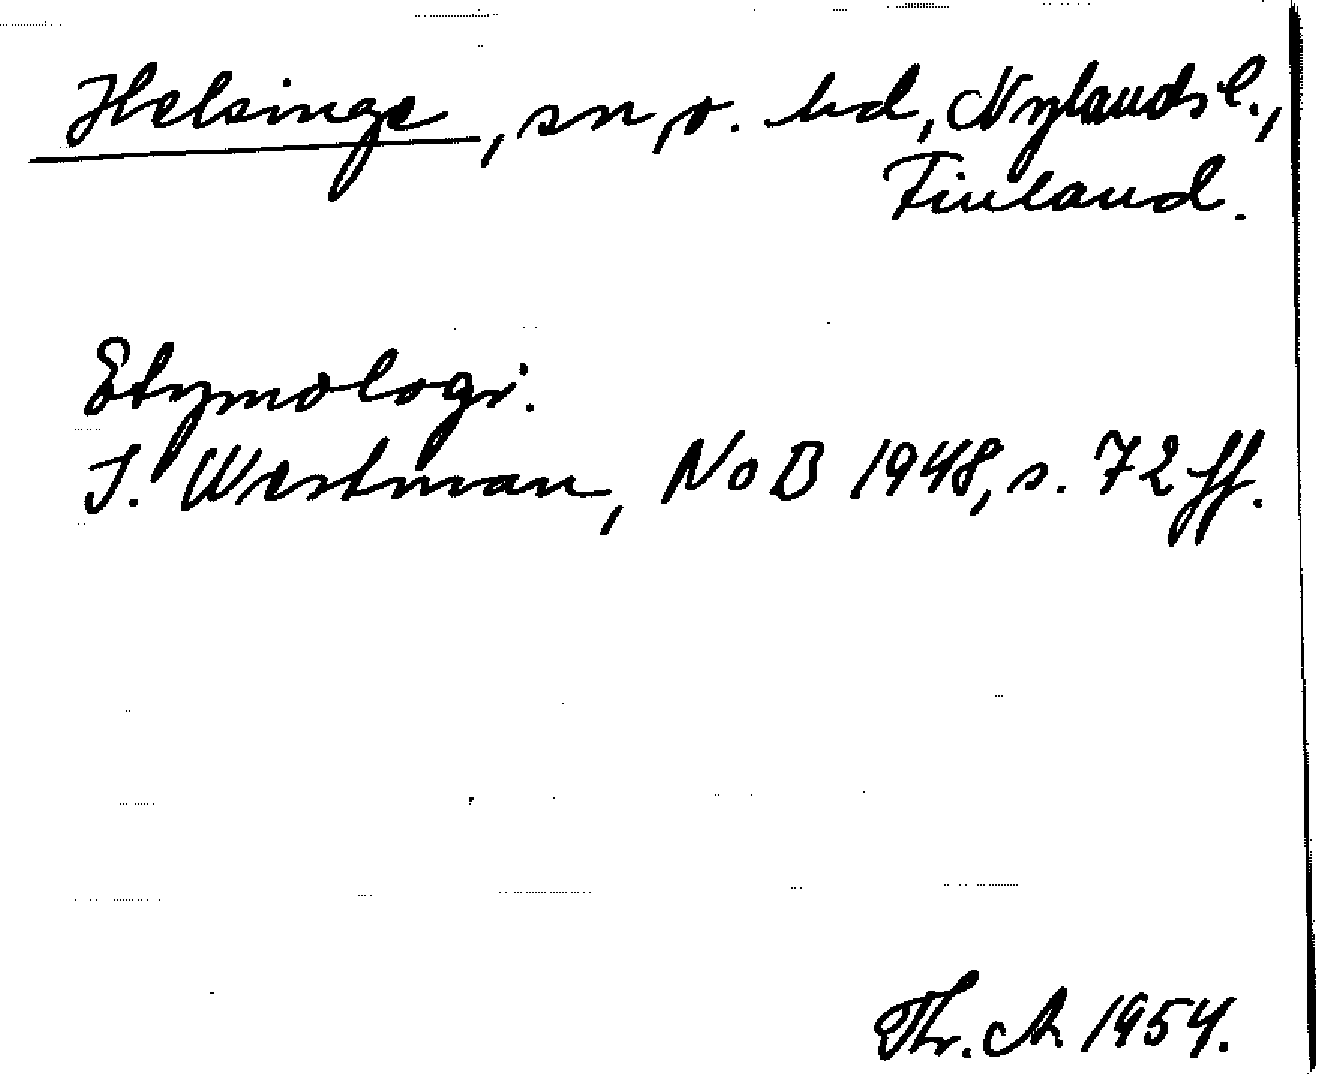 Helsinge, sn, o. hd, Nylands l.,
Finland.
Etymologi:
I. Westman, NoB 1948, s. 72 ff.
Thr. A 1954.